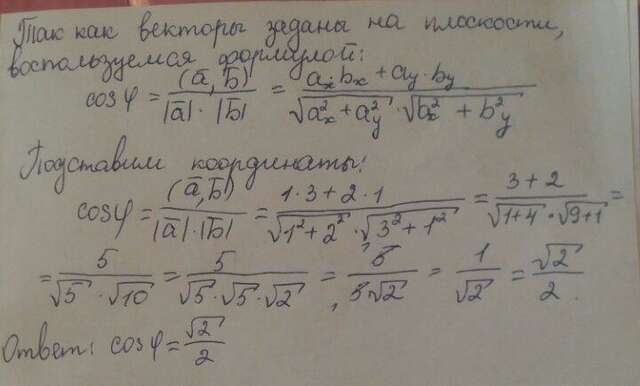 Так как векторы заданы на плоскости,
воспользуемся формулой:
cos φ = (a̅, b̅) / |a̅|·|b̅| = aₓbₓ + a_y·b_y / √(aₓ² + a_y²)·√(bₓ² + b_y²)
Подставим координаты:
cos φ = (a̅, b̅) / |a̅|·|b̅| = 1·3 + 2·1 / √(1² + 2²)·√(3² + 1²) = 3 + 2 / √(1+4)·√(9+1) =
= 5 / √5·√10 = 5 / √5·√5·√2 = 5 / 5√2 = 1 / √2 = √2 / 2.
Ответ: cos φ = √2 / 2